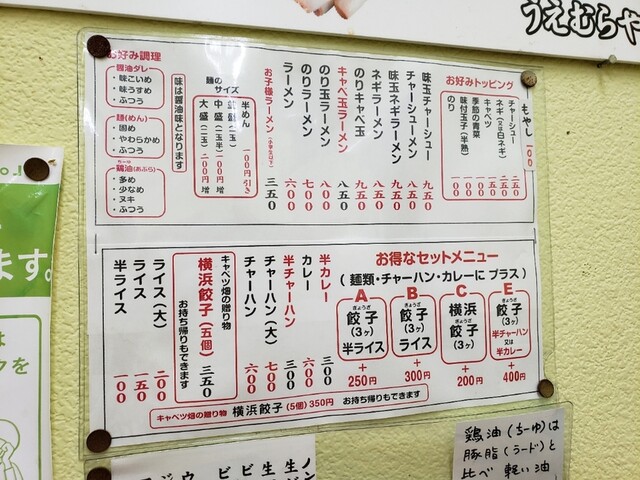 うえむらや
お好みトッピング
もやし 一〇〇
チャーシュー
ネギ(又は白ネギ)
キャベツ
季節の青菜
味付玉子(半熟) 一〇〇
のり 一〇〇
味玉チャーシュー 九五〇
チャーシューメン 八五〇
味玉ネギラーメン 九五〇
ネギラーメン 八五〇
のりキャベ玉 九五〇
キャベ玉ラーメン 八五〇
のり玉ラーメン 八〇〇
のりラーメン 七〇〇
ラーメン 六〇〇
お子様ラーメン(小学生以下) 三五〇
麺のサイズ
半めん 一〇〇円引き
並盛(一玉)
中盛(一玉半) 一〇〇円増
大盛(二玉) 二〇〇円増
味は醤油味となります
お好み調理
醤油ダレ
・味こいめ
・味うすめ
・ふつう
麺(めん)
・固め
・やわらかめ
・ふつう
鶏油(あぶら)
・多め
・少なめ
・ヌキ
・ふつう
お得なセットメニュー
(麺類・チャーハン・カレーに プラス)
A
餃子
(3ヶ)
半ライス
+
250円
B
餃子
(3ヶ)
ライス
+
300円
C
横浜
餃子
(3ヶ)
+
200円
E
餃子
(3ヶ)
半チャーハン
又は
半カレー
+
400円
半カレー 三〇〇
カレー 六〇〇
半チャーハン 三〇〇
チャーハン(大) 七〇〇
チャーハン 六〇〇
キャベツ畑の贈り物
横浜餃子(五個) 三五〇
お持ち帰りもできます
ライス(大) 二〇〇
ライス 一五〇
半ライス 一〇〇
キャベツ畑の贈り物 横浜餃子(5個)350円 お持ち帰りもできます
ます。
は
クを
鶏油(ちーゆ)は
豚脂(ラード)と
比べ 軽い油